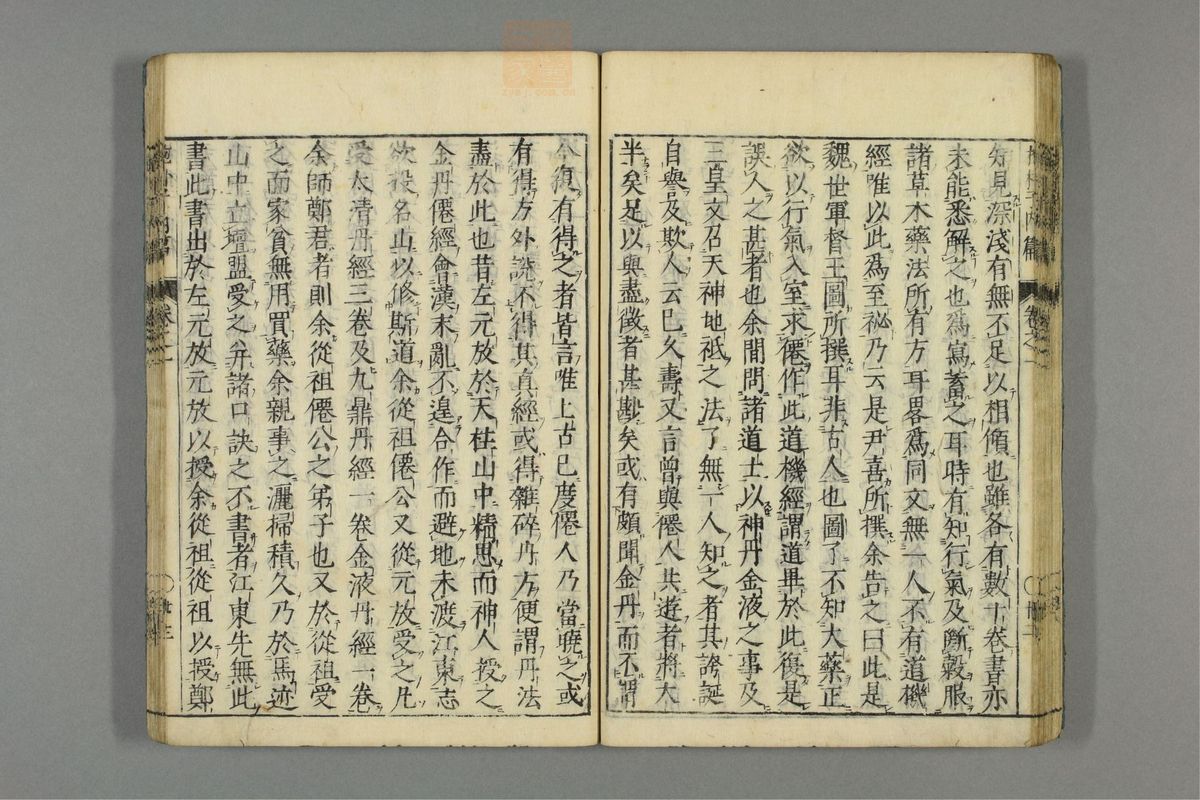 先見深淺有無不足以相傾也雖各有數十卷書亦
未能悉解之也爲寫蓄之耳時有知行氣及斷穀服
諸草木藥法所有方耳畧爲同文無一人不有道機
經唯以此爲至祕乃云是尹喜所撰余告之曰此是
魏世軍督王圖所撰耳非古人也圖了不知大藥正
欲以行氣入室求僊作此道機經謂道畢於此復是
誤人之甚者也余聞問諸道士以神丹金液之事及
三皇文召天神地祇之法了無一人知之者其誇誕
自譽及欺人云巳久壽又言曾與僊人共遊者將太
半矣足以與盡微者甚尠矣或有頗聞金丹而不謂
今復有得之者皆言唯上古巳度僊人乃當曉之或
有得方外說不得其眞經或得雜碎丹方便謂丹法
盡於此也昔左元放於天柱山中精思而神人授之
金丹僊經會漢末亂不遑合作而避地來渡江東志
欲投名山以修斯道余從祖僊公又從元放受之凡
受太清丹經三卷及九鼎丹經一卷金液丹經一卷
余師鄭君者則余從祖僊公之弟子也又於從祖受
之而家貧無用買藥余親事之灑掃積久乃於馬迹
山中立壇盟受之幷諸口訣之不書者江東先無此
書此書出於左元放元放以授余從祖從祖以授鄭